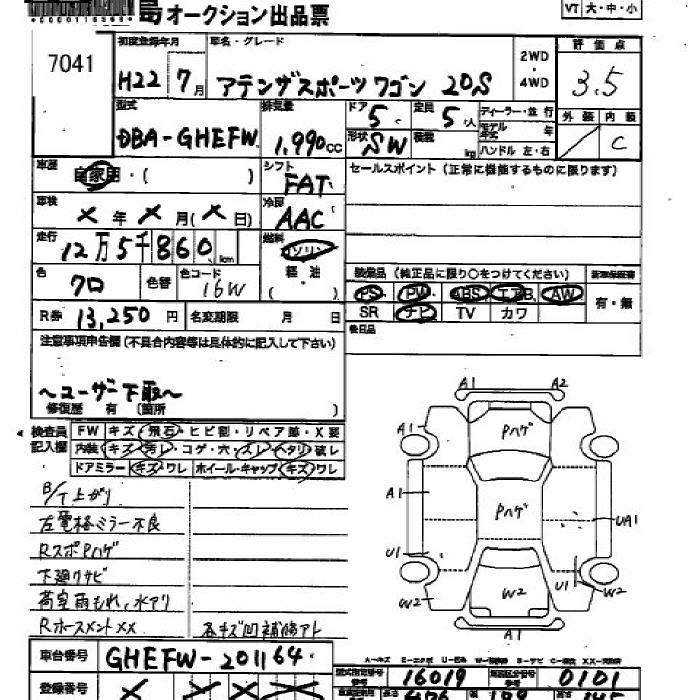 島オークション出品票
VT 大・中・小
7041
初度登録年月 車名・グレード 2WD・4WD 評価点
H22 7月 アテンザスポーツワゴン 20S 3.5
型式 排気量 ドア 定員 ディーラー・並行 外装 内装
DBA-GHEFW 1,990cc 5 5人 モデル年式 年 C
形状 SW 積載 kg ハンドル 左・右
車歴 自家用・( ) シフト FAT セールスポイント(正常に機能するものに限ります)
車検 X年X月(X日) 冷房 AAC
走行 12万5千860km 燃料 ガソリン 軽油 ( )
色 クロ 色替 色コード 16W
装備品(純正品に限り○をつけてください) 新車保証書
PS PW ABS エアB AW 有・無
SR ナビ TV カワ
R券 13,250円 名変期限 月 日
後日品
注意事項申告欄(不具合内容等は具体的に記入して下さい)
~ユーザー下取~
修復歴 有 (箇所 )
検査員記入欄 FW キズ・飛石・ヒビ割・リペア跡・X要
内装 キズ・汚レ・コゲ・穴・スレ・ヘタリ・破レ
ドアミラー キズ・ワレ ホイール・キャップ キズ・ワレ
B/T上がり
左電格ミラー不良
RスポPハゲ
下廻りサビ
荷室雨もれ、水アリ
Rホースメント XX 各キズ凹補修アト
A1 A2
A1 Pハゲ
A1 Pハゲ UA1
U1 U1
W2 W2 W2
A1
A-キズ E-エクボ U-凹み W-補修跡 S-サビ C-腐食 XX-交換済
車台番号 GHEFW-201164
型式指定番号 16019 類別区分番号 0101
登録番号 X X X X